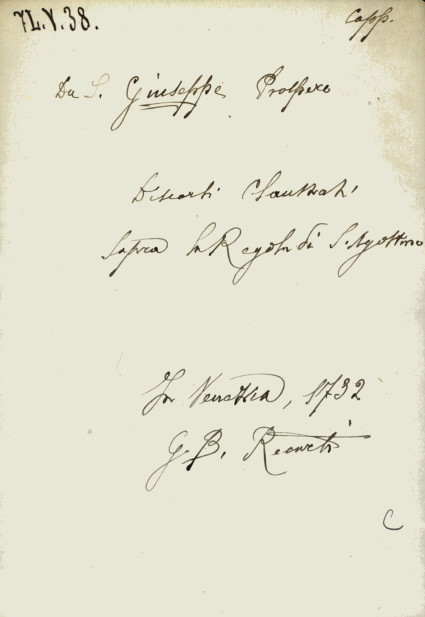 7L.V.38.
Capp.
Da S. Giuseppe Prospero
Discorsi Claustrali
sopra la Regola di S. Agostino
In Venezia, 1732
G. B. Recurti
C